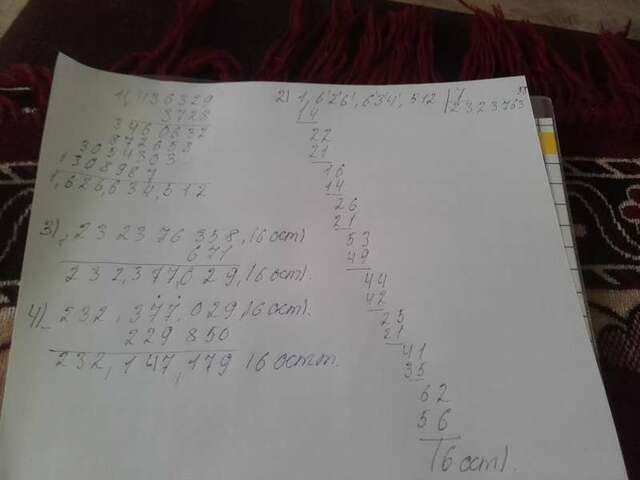 1) 436329
3728
3490632
872658
3054303
1308987
1,626,634,512
2) 1,626,634,512 | 7
232376358
14
22
21
16
14
26
21
53
49
44
42
25
21
41
35
62
56
(6 ост).
3) 232376358, (6 ост)
671
232,377,029, (6 ост).
4) 232,377,029 (6 ост).
229850
232,147,179 (6 ост).